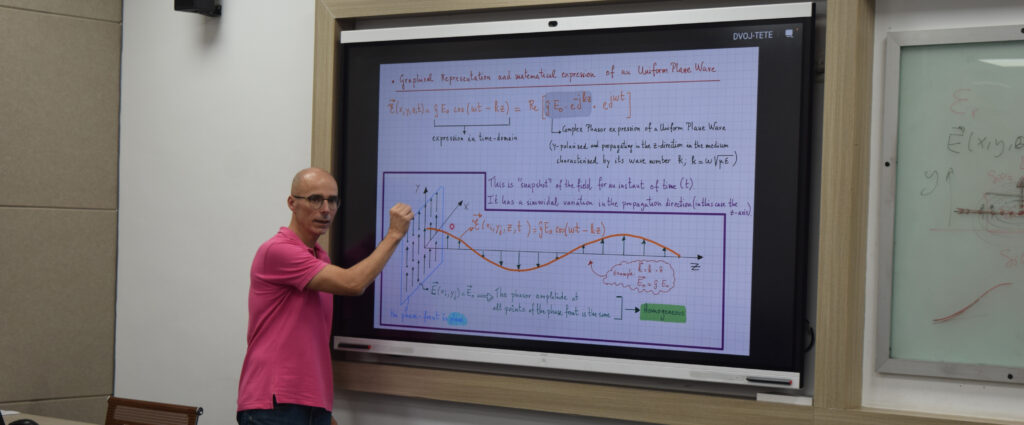 DVOJ-TETE
• Graphical Representation and matematical expression of an Uniform Plane Wave
E⃗(x,y,z,t) = ŷ E₀ cos(ωt − kz) = Re [ŷ E₀ · e^{-jkz} · e^{jωt}]
expression in time-domain
Complex Phasor expression of a Uniform Plane Wave
(Y-polarised and propagating in the z-direction in the medium
characterised by its wave number k, k = ω√με)
This is "snapshot" of the field for an instant of time (t)
It has a sinusoidal variation in the propagation direction (in this case the
z-axis)
Y
X
(x_i, y_i, z, t) = ŷ E₀ cos(ωt − kz)
Z
Example
E⃗(x_i, y_i) = E⃗₀
The phasor amplitude at
all points of the phase front is the same
Homogeneous
phase-front is
E⃗(x,y,
y